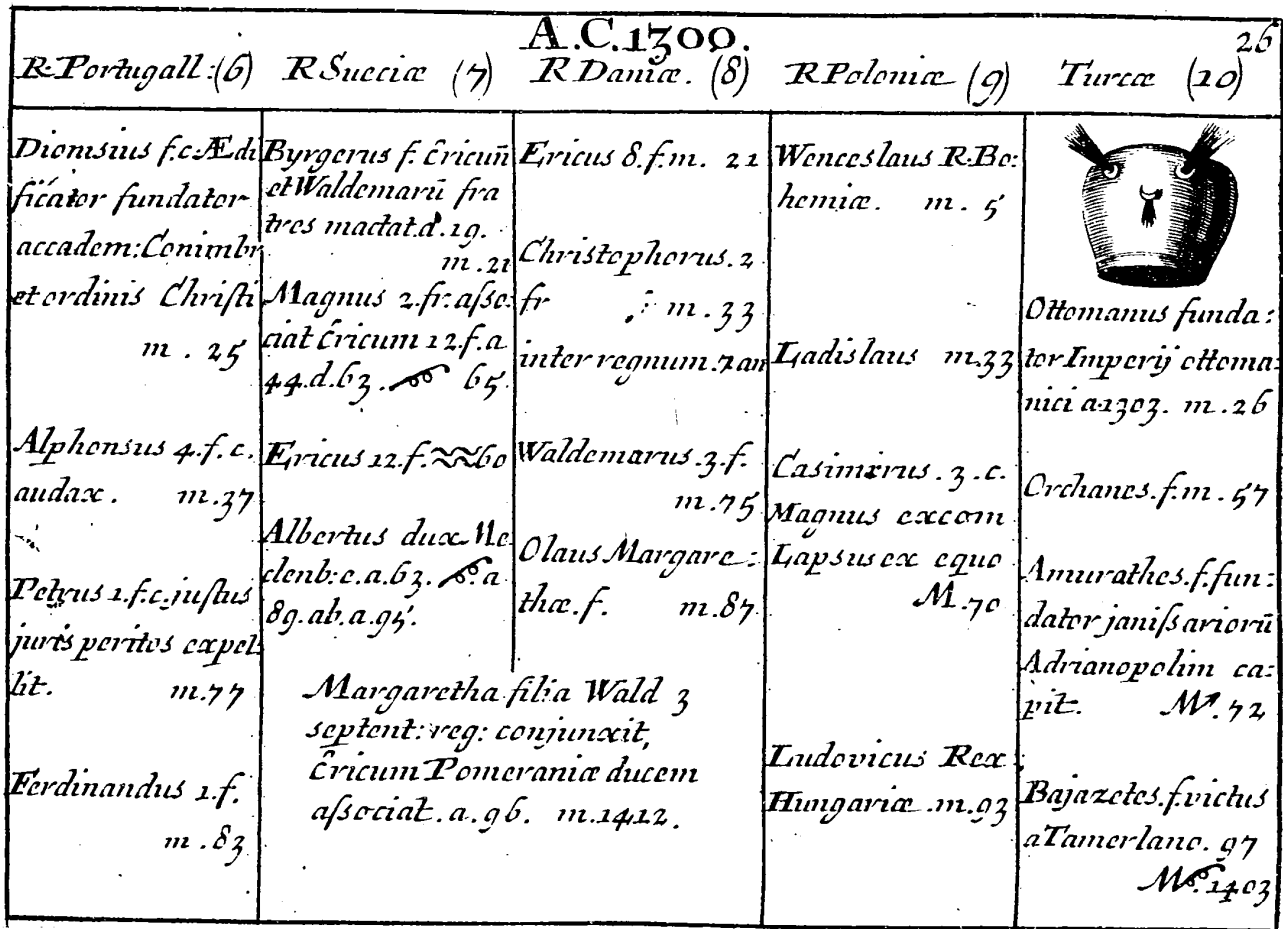 A.C.1300.
26
R. Portugall: (6)
R Sueciæ (7)
R Daniæ. (8)
R Poloniæ (9)
Turcæ (10)
Dionisius f.c. Ædi
ficator fundator
accadem: Conimbr
et ordinis Christi
m. 25
Alphonsus 4. f. c.
audax. m. 37
Petrus 1. f. c. justus
juris peritos expel
lit. m. 77
Ferdinandus 1. f.
m. 83
Byrgerus f. Ericuñ
et Waldemarū fra
tres mactat. d. 19.
m. 21
Magnus 2. fr. asso:
ciat Ericum 12. f. a
44. d. 63. 65.
Ericus 12. f. 60
Albertus dux Me
clenb: e. a. 63. a
89. ab. a. 95.
Ericus 8. f. m. 21
Christophorus. 2
fr m. 33
inter regnum. 7 an
Waldemarus. 3. f.
m. 75
Olaus Margare:
thæ. f. m. 87
Margaretha filia Wald 3
septent: reg: conjunxit,
Ericum Pomeraniæ ducem
associat. a. 96. m. 1412.
Wenceslaus R. Bo:
hemiæ. m. 5
Ladislaus m. 33
Casimirus. 3. c.
Magnus excom
Lapsus ex equo
M. 70
Ludovicus Rex
Hungariæ. m. 93
Ottomanus funda:
tor Imperij ottoma:
nici a 1303. m. 26
Orchanes. f. m. 57
Amurathes. f. fun:
dator janissariorū
Adrianopolim ca:
pit. M. 72
Bajazetes. f. victus
a Tamerlano. 97
M. 1403